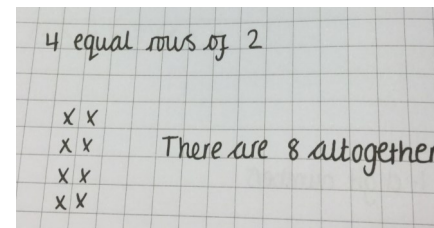 4 equal rows of 2
x x
x x
There are 8 altogether
x x
x x